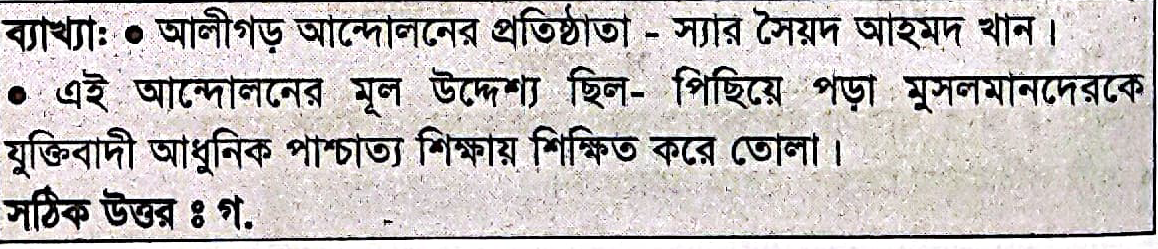 ব্যাখ্যাঃ ● আলীগড় আন্দোলনের প্রতিষ্ঠাতা - স্যার সৈয়দ আহমদ খান।
● এই আন্দোলনের মূল উদ্দেশ্য ছিল- পিছিয়ে পড়া মুসলমানদেরকে
যুক্তিবাদী আধুনিক পাশ্চাত্য শিক্ষায় শিক্ষিত করে তোলা।
সঠিক উত্তর ঃ গ.